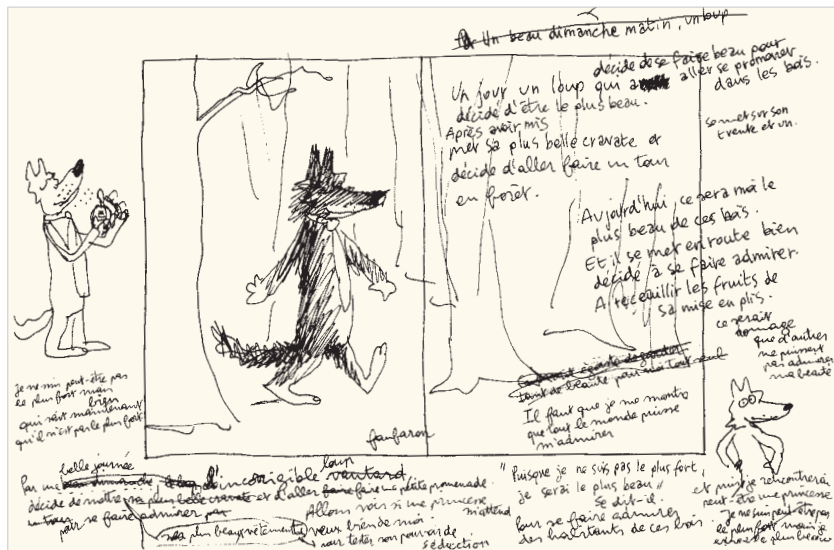 Un beau dimanche matin, un loup
décide de se faire beau pour
aller se promener
dans les bois.
Un jour un loup qui a
décidé d'être le plus beau.
Après avoir mis
met sa plus belle cravate et
décide d'aller faire un tour
en forêt.
se met sur son
trente et un.
Aujourd'hui, ce sera moi le
plus beau de ces bois.
Et il se met en route bien
décidé à se faire admirer.
A recueillir les fruits de
sa mise en plis.
ce serait
dommage
que d'autres
ne puissent
pas admirer
ma beauté
égoiste de garder
tant de beauté pour moi tout seul
Il faut que je me montre
que tout le monde puisse
m'admirer
je ne suis peut-être pas
le plus fort mais
bien
qui sait maintenant
qu'il n'est pas le plus fort
fanfaron
belle journée
loup
Par une beau dimanche incorrigible vantard,
décide de mettre sa plus belle cravate et d'aller faire faire une petite promenade
pour se faire admirer par
ses plus beaux vêtements
Allons voir si une princesse
m'attend
veux bien de moi
pour tester son pouvoir de
séduction
"Puisque je ne suis pas le plus fort,
je serai le plus beau"
se dit-il.
Pour se faire admirer
des habitants de ces bois.
et puis je rencontrerai
peut-être une princesse
Je ne suis peut-être pas
le plus fort mais je
le plus beau